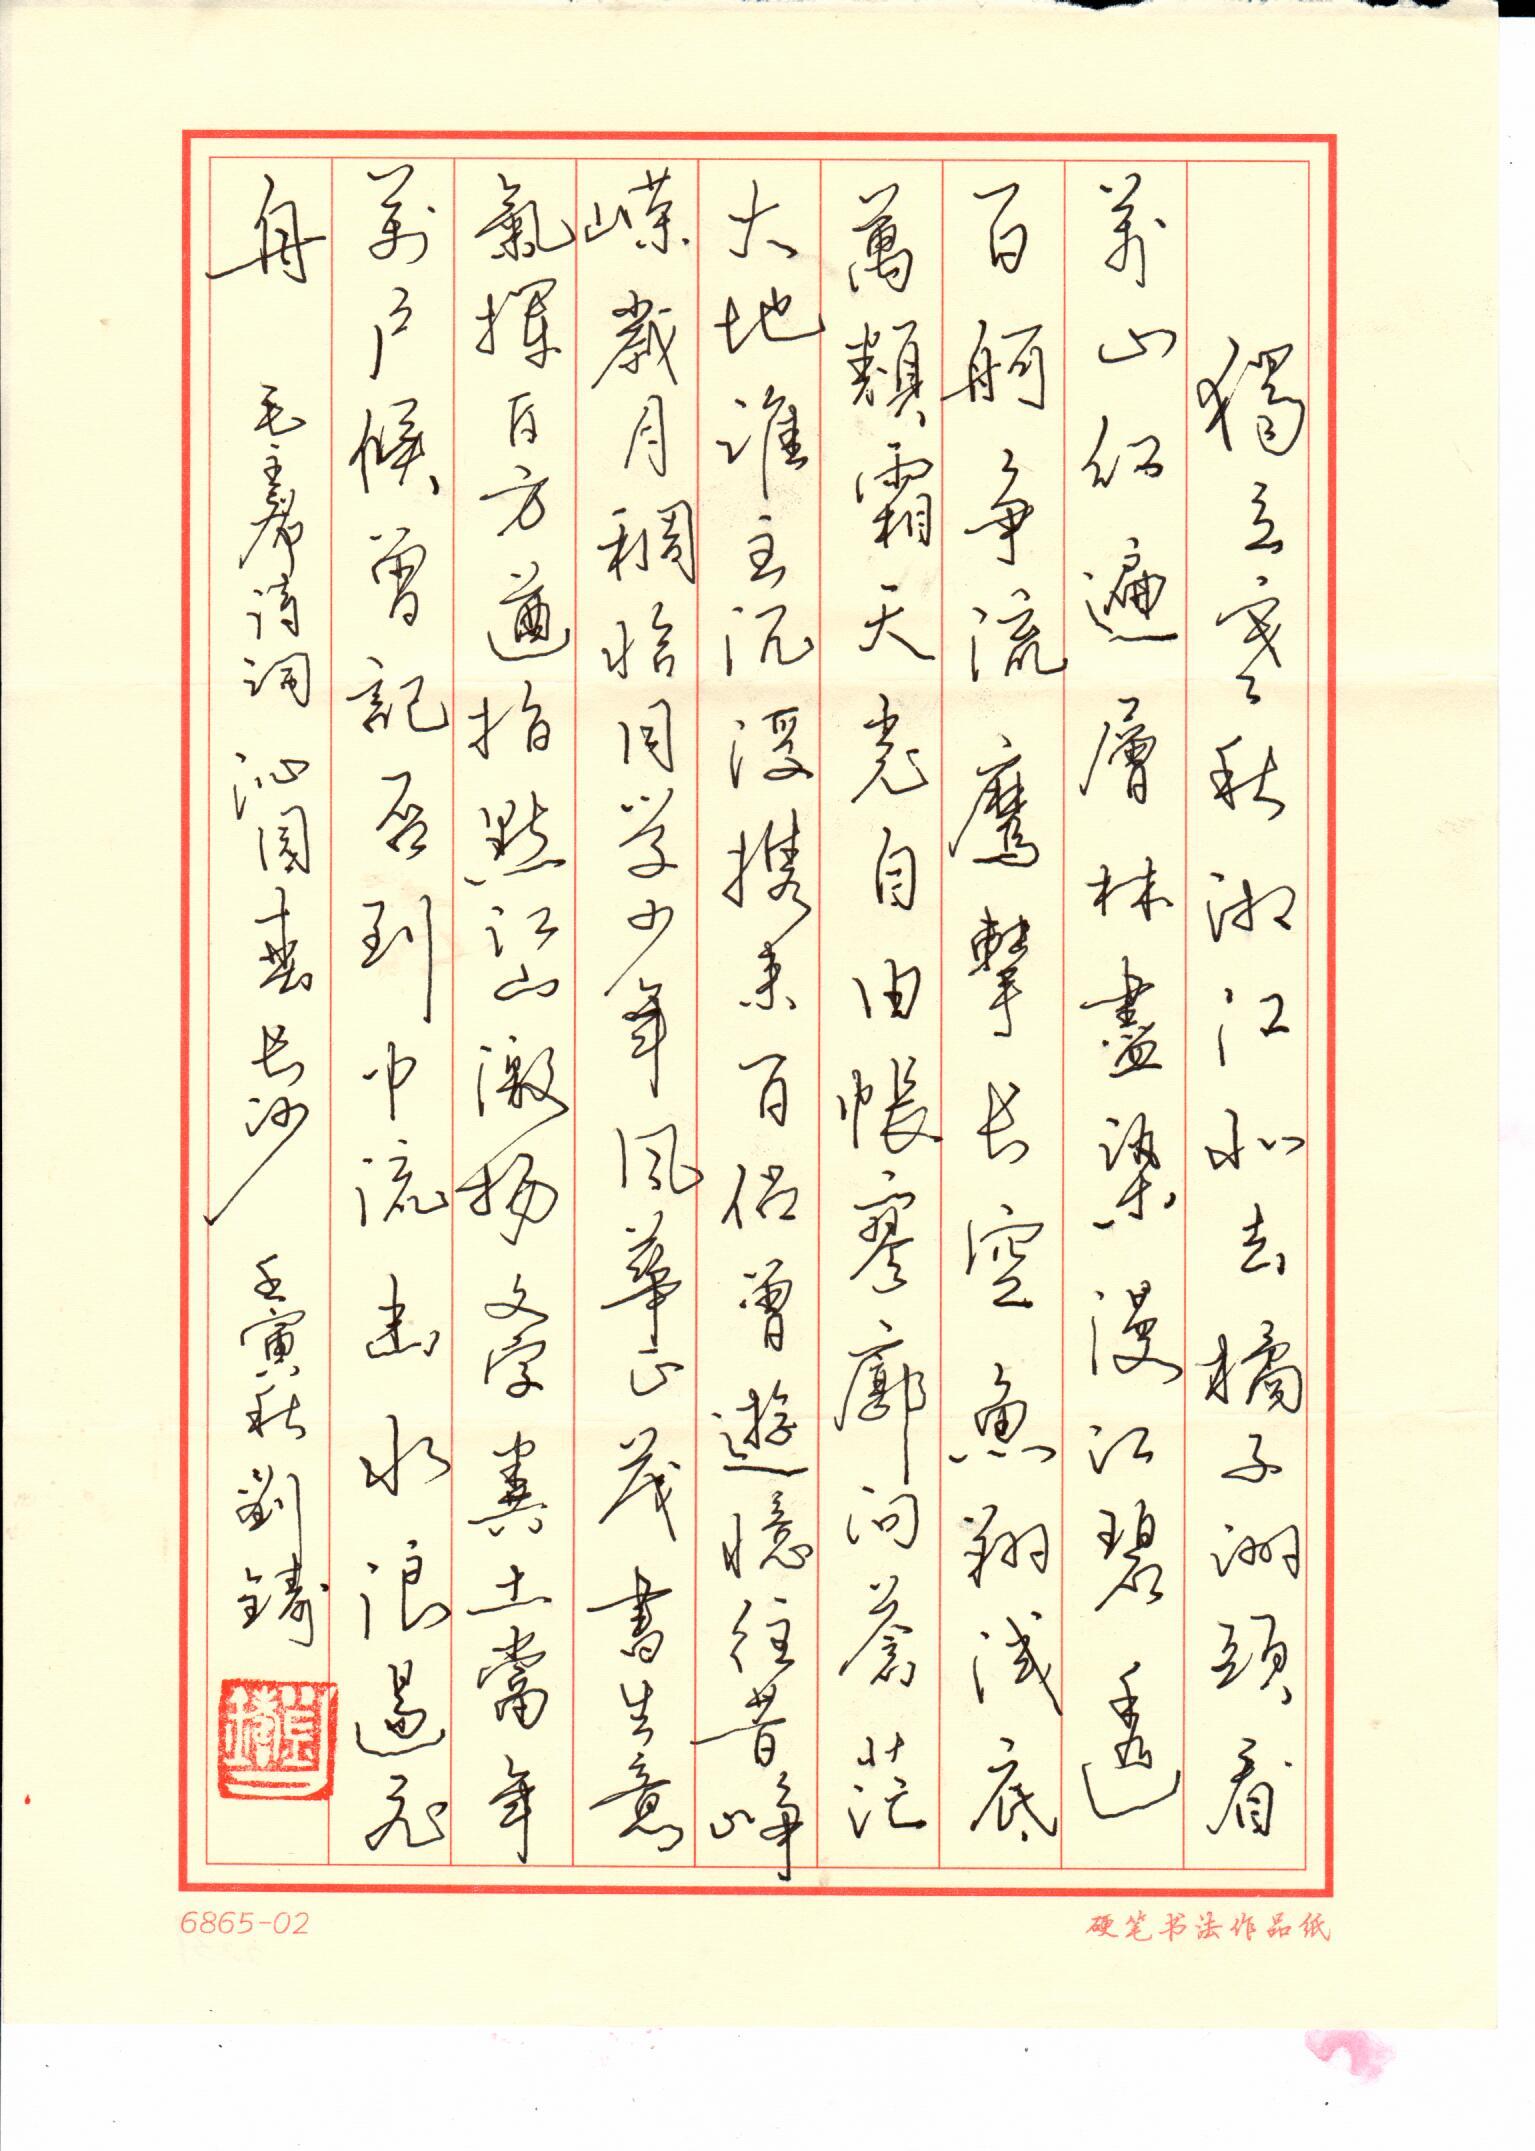 獨立寒秋湘江北去橘子洲頭看
萬山紅遍層林盡染漫江碧透
百舸争流鷹擊長空魚翔淺底
萬類霜天競自由悵寥廓問蒼茫
大地誰主沉浮攜來百侣曾遊憶往昔崢
嶸歲月稠恰同學少年風華正茂書生意
氣揮斥方遒指點江山激揚文字糞土當年
萬户侯曾記否到中流击水浪遏飛
舟 毛主席诗词 沁園春 長沙 壬寅秋 劉鑄
6865-02
硬笔书法作品纸